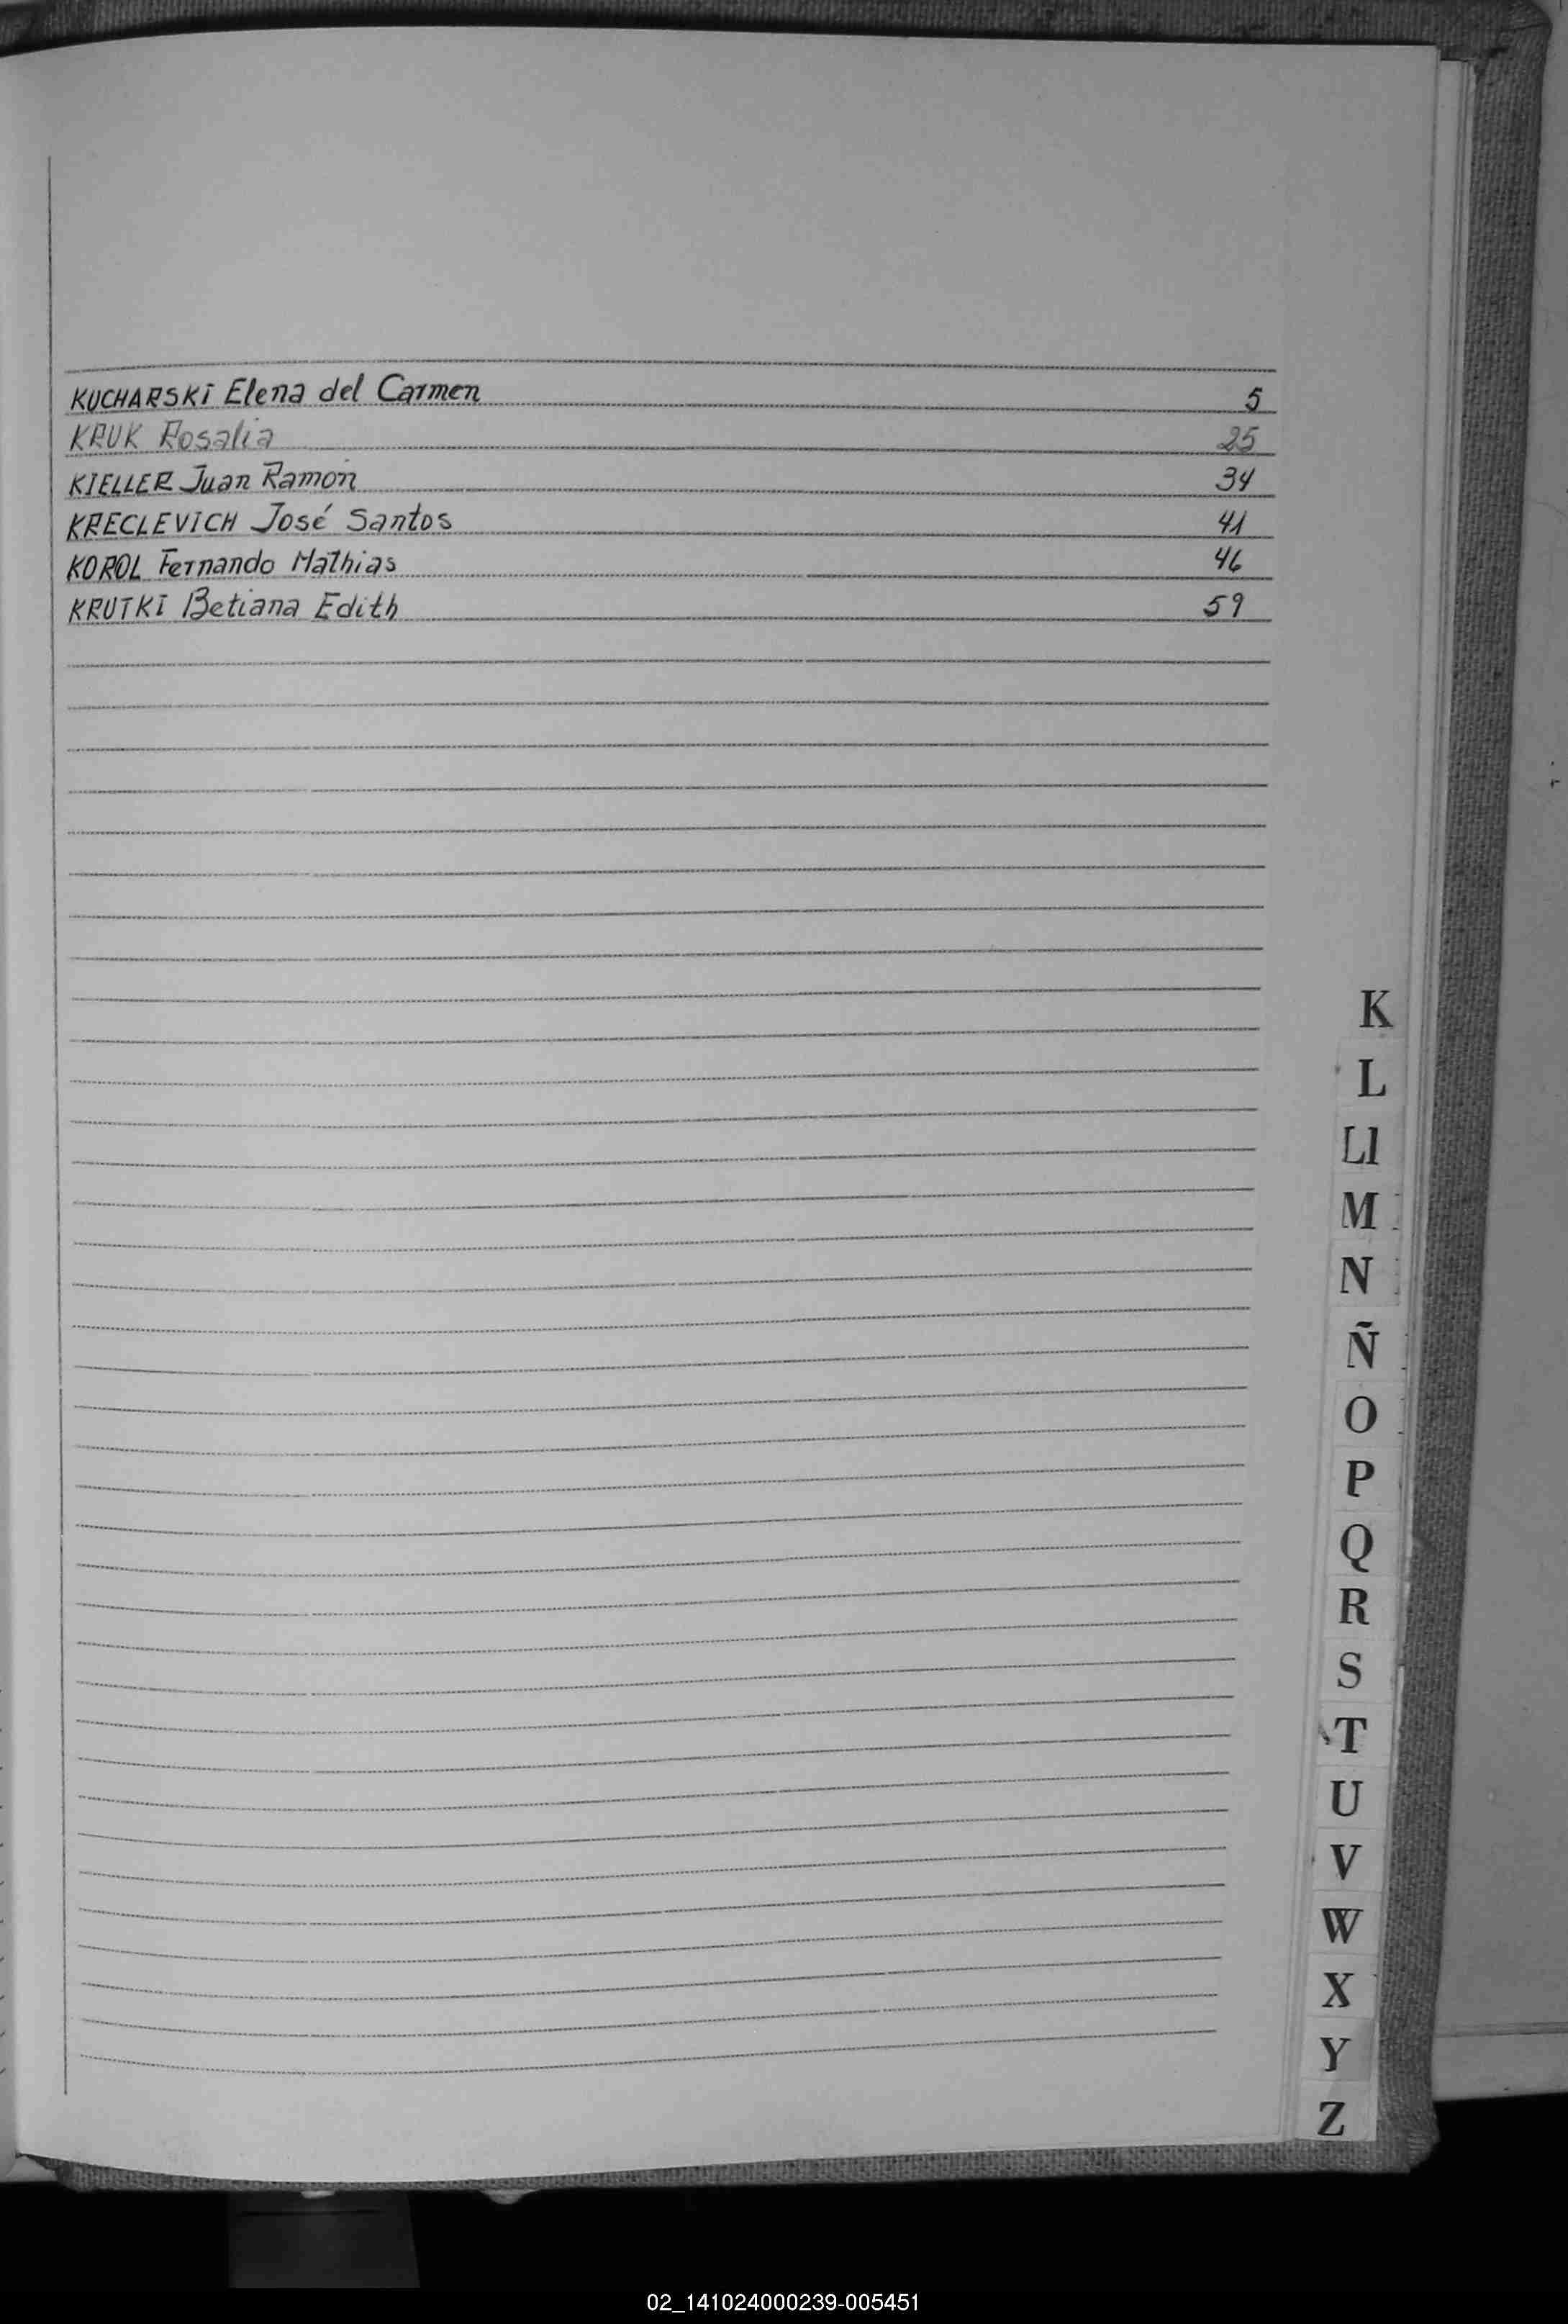 KUCHARSKI Elena del Carmen 5
KRUK Rosalia 25
KIELLER Juan Ramón 34
KRECLEVICH José Santos 41
KOROL Fernando Mathias 46
KRUTKI Betiana Edith 59
K
L
Ll
M
N
Ñ
O
P
Q
R
S
T
U
V
W
X
Y
Z
02_141024000239-005451